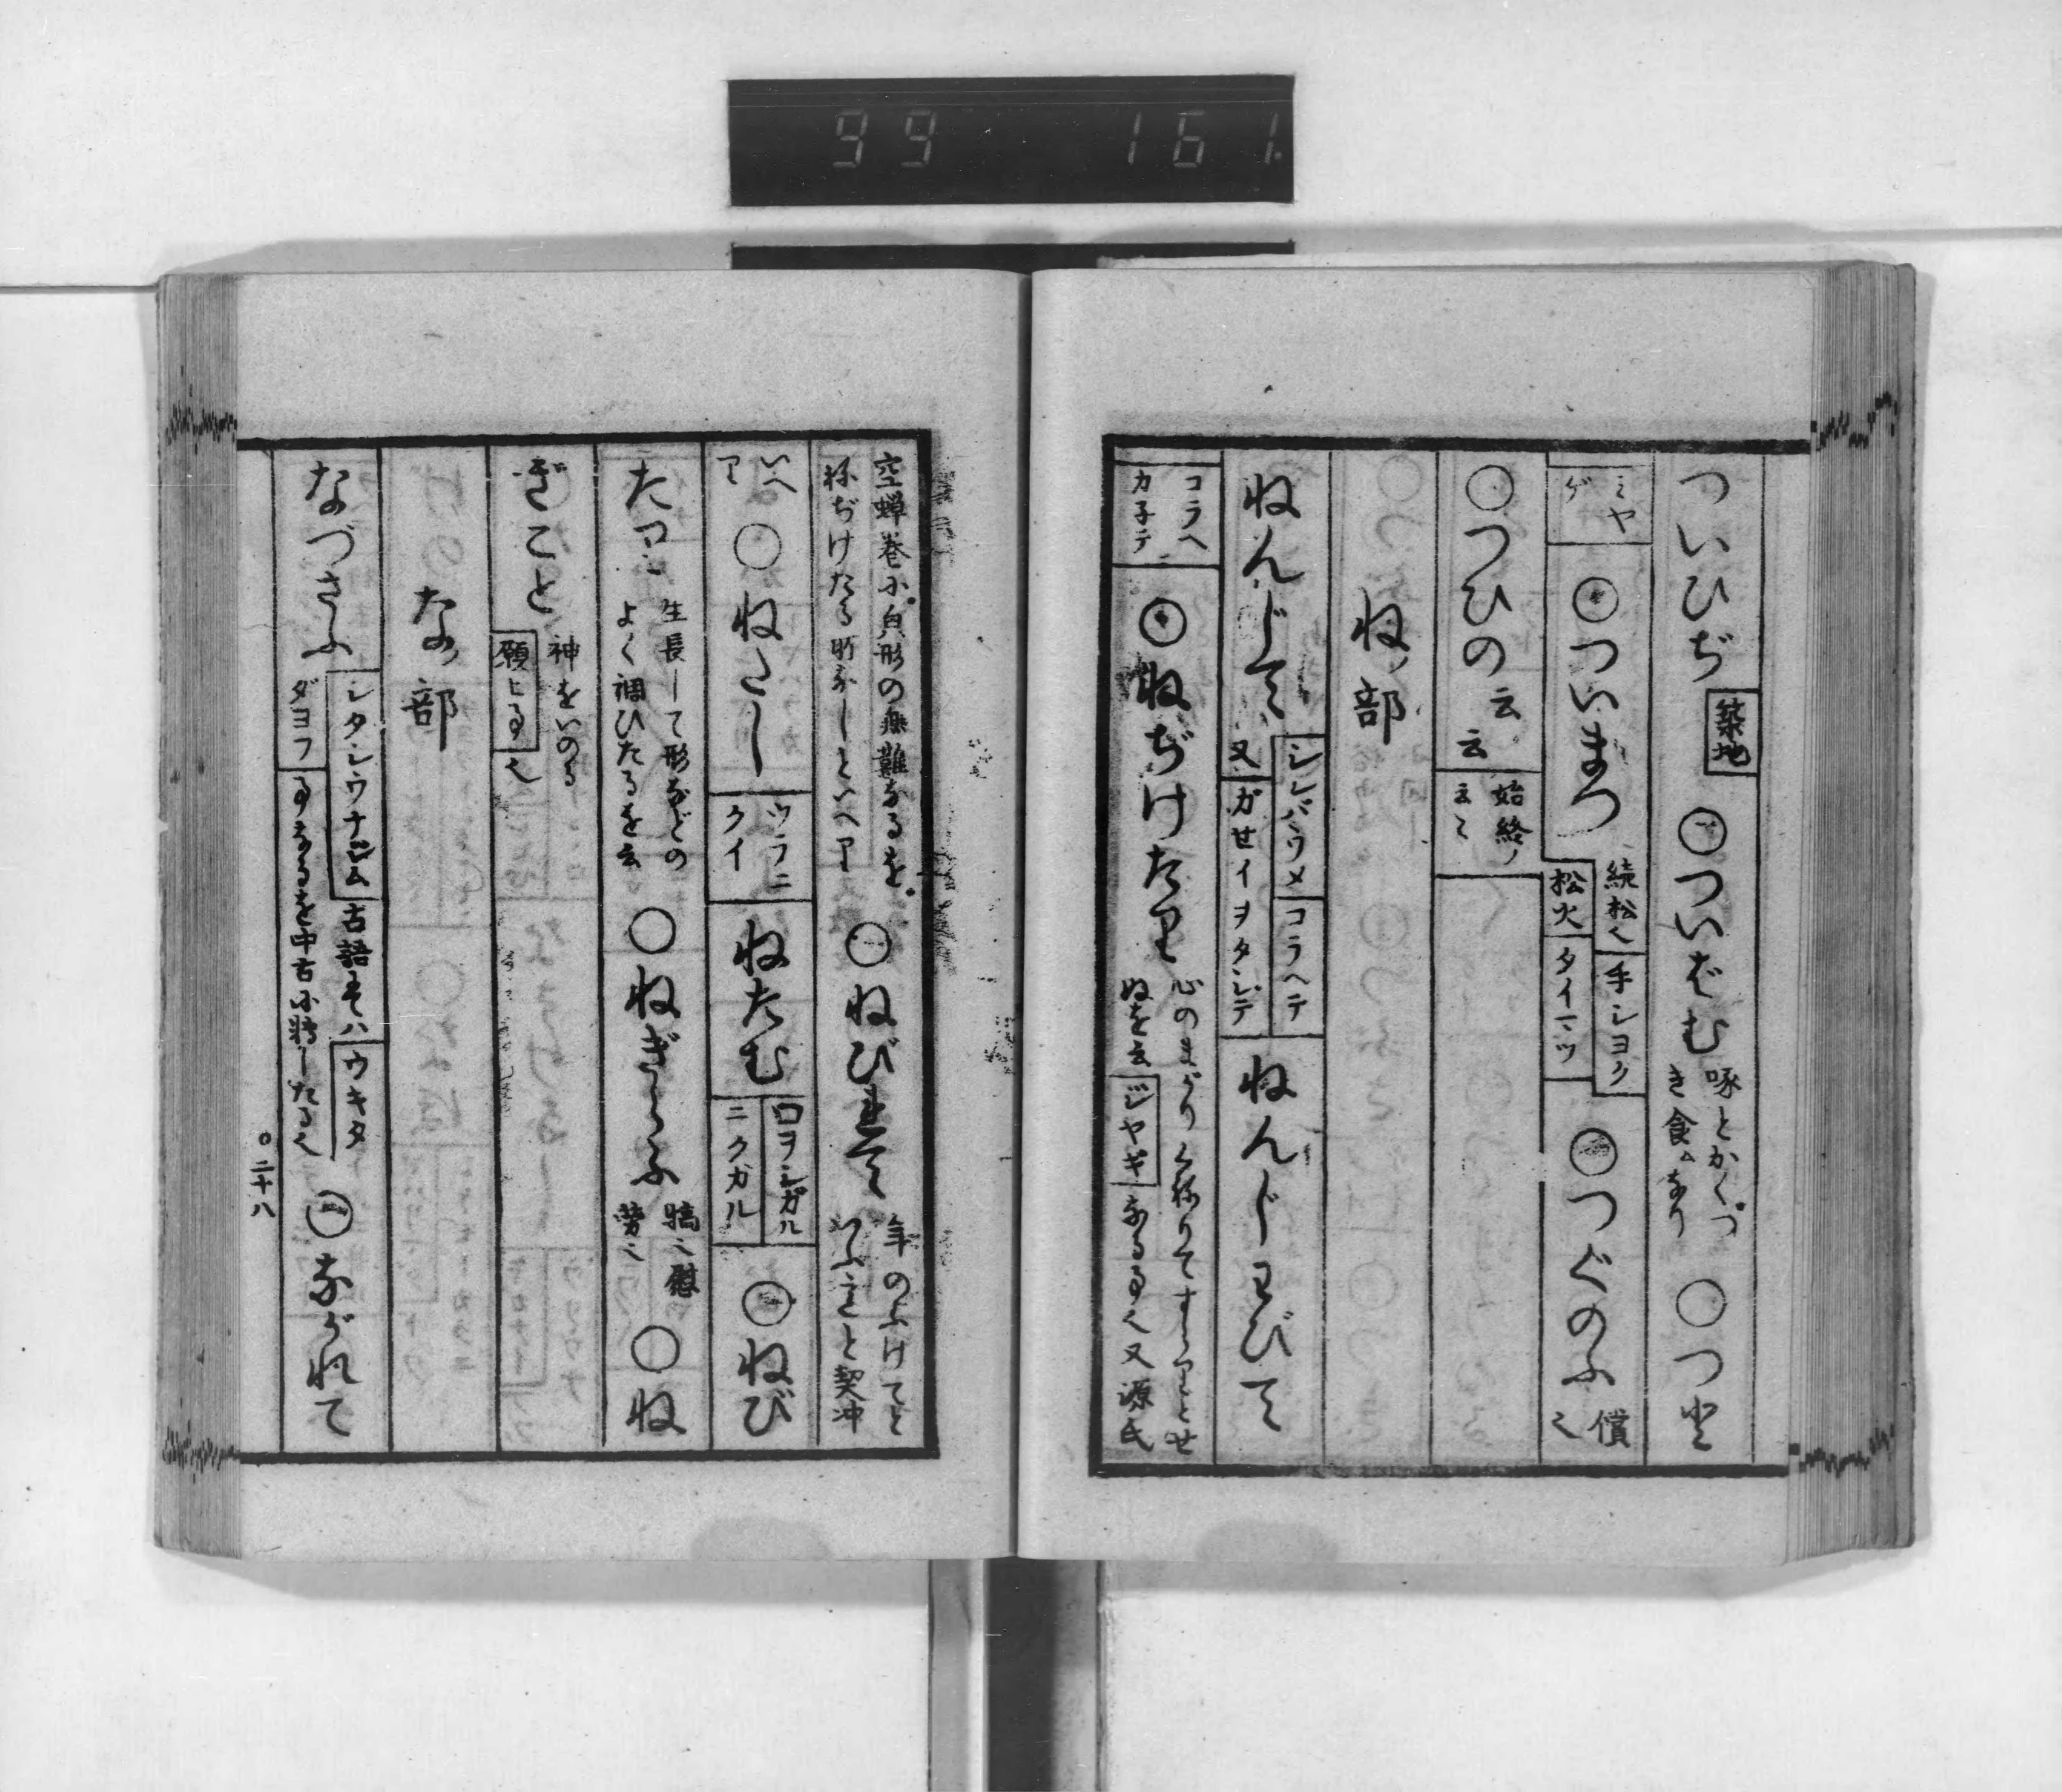 99 161
ついひぢ 築地 ○ついばむ 啄とかくつき食なり ○つと
ミヤゲ ○ついまつ 続松也 手シヨク 松火 タイマツ ○つぐのふ 償
○つひの云云 始終ノ云々
ねノ部
ねんじて シンバウメ コラヘテ 又 ガセイヲタシテ ねんじわびて
コラヘカ子テ ○ねぢけたり 心のまがりくねりてすとせぬを云 ジヤギ なる事也又源氏
空蝉巻に皃形の無難なるを
ねぢけたる所なしといへり ○ねびまて 年のふけてと
いふことと契冲
いへり ○ねたし ウラニクイ ねたむ 口ヲシガル ニクガル ○ねび
たり 生長して形などの
よく調ひたるを云 ○ねぎらふ 犒 慰 労 ○ね
ぎこと 神をいのる 願ヒ事也
なノ部
なづさふ シタシウナジム 古語にてハ ウキタダヨフ 事なるを中古に転したる也 ○ながれて
○二十八